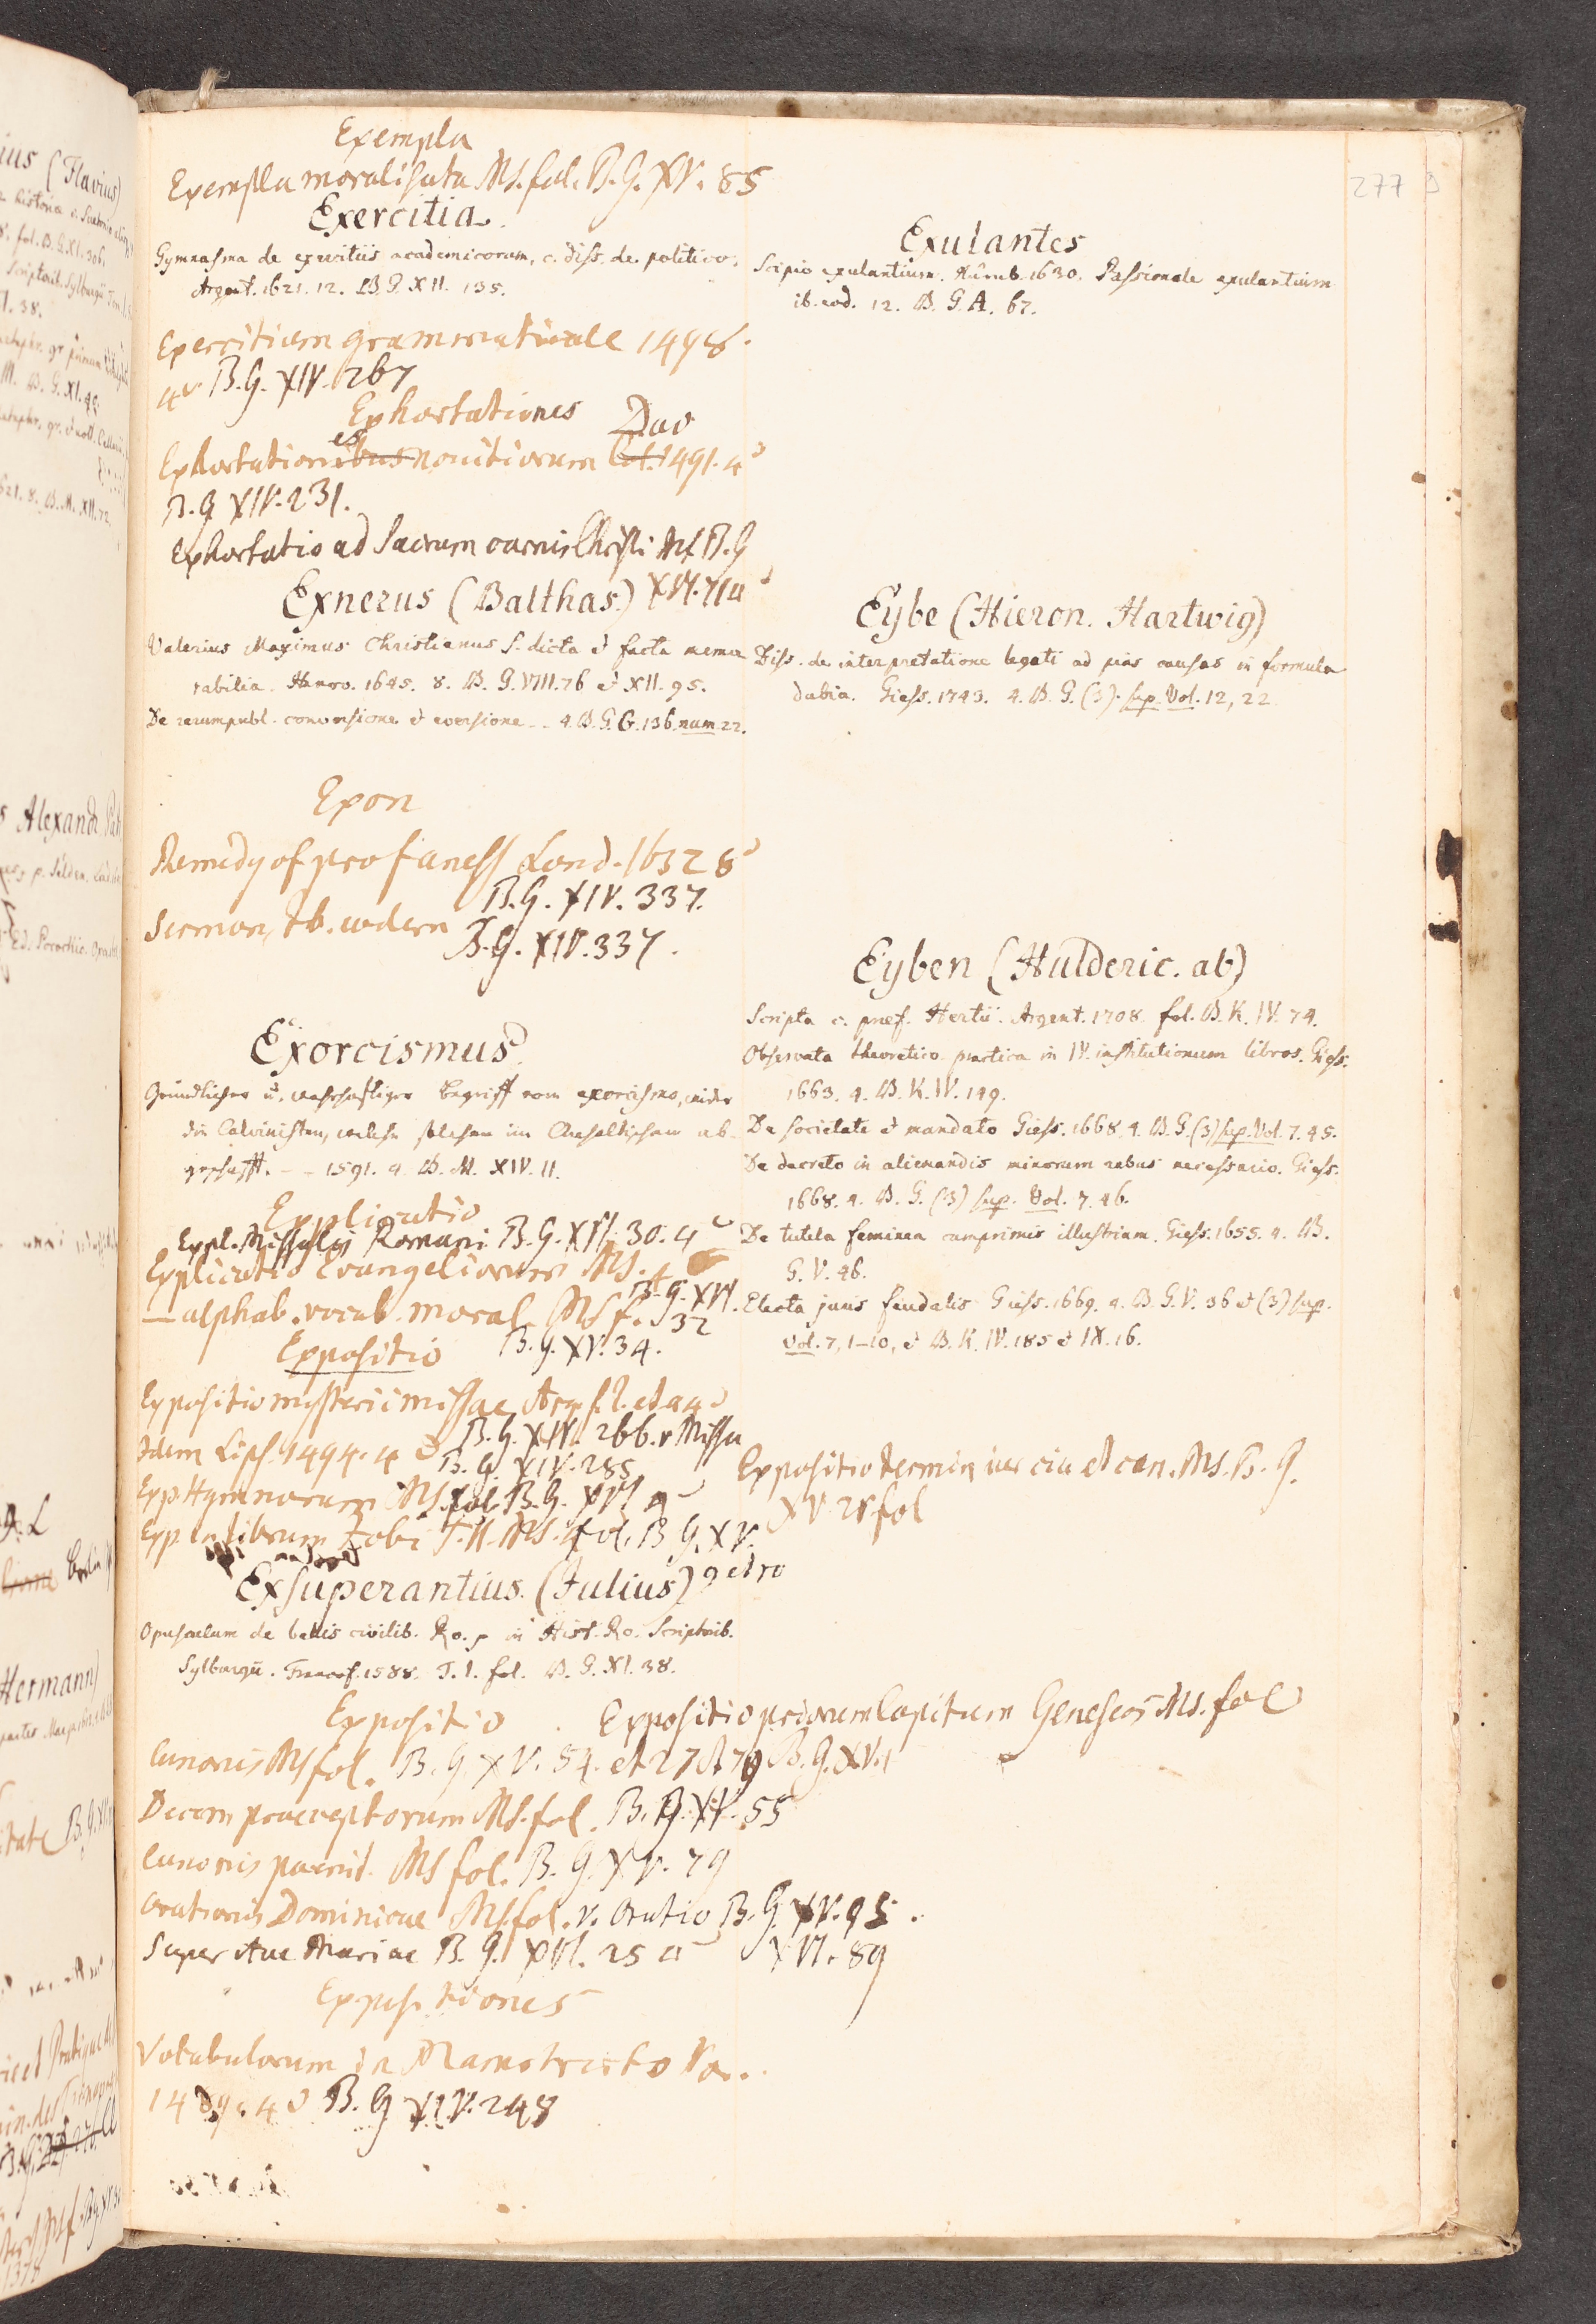 Exempla
Exempla moralisata Ms. fol. B. G. XV. 85
Exercitia.
Gymnasma de exercitiis academicorum, c. diss. de politico.
Argent. 1621. 12. B. G. XII. 135.
Exercitium grammaticale 1498.
4º B.G. XIV. 267
Exhortationes Duo
Exhortationibus es novitiorum Col. 1491. 4º
B. G XIV. 231.
Exhortatio ad Sacrum carnis Christi Ms B. G
XVI. 71 a
Exnerus (Balthas.)
Valerius Maximus Christianus S. dicta & facta memo
rabilia. Hanov. 1645. 8. B. G. VIII. 76 & XII. 95.
De rerumpubl. conversione & eversione - - 4. B. G. G. 136. num. 22.
Exon
Remedy of profaness Lond. 1632 8º
B. G. XIV. 337.
Sermon, ib. eodem B. G. XIV. 337.
Exorcismus
Gründlicher u. wahrhaftiger Begriff vom exorcismo, wider
die Calvinisten, welche solchen im Anhaltischen ab
geschafft. - - 1591. 4. B. M. XIV. 11.
Explicatio
Expl. Missalis Romani B. G. XVI. 30. 4º
Explicatio Evangeliorum Ms. 4
B. G. XVI.
— alphab. vocab. moral. Ms f. 32
B. G. XV. 34.
Expositio
Expositio mysterii missae Arg. s. l. et a 4º
B. G. XIV. 266. v Missa
Idem Lips. 1494. 4º B. G. XIV. 285
Exp. Hymnorum Ms. fol. B. G. XVI 9
Exp. in librum Tobi T. II. Ms. fol. B G. XV.
9 et 10
Exsuperantius. (Julius)
Opusculum de bellis civilib. Ro. p in Hist. Ro. Scriptorib.
Sylburgii. Francof. 1588. T. I. fol. B. G. XI. 38.
Expositio . Expositio priorum Capitum Geneseos Ms. fol
B. G. XV. 1
Canonis Ms fol. B. G. XV. 54. et 27 et 79
Decem praeceptorum Ms. fol. B. G. XV. 55
Canonis paenit. Ms fol. B. G. XV. 79
Orationis Dominicae Ms. fol. v. Oratio B. G. XV. 95.
Super Ave Mariae B. G. XVI. 25 a XVI. 89
Expositiones
Vocabulorum in Mamotrecto Ven.
1489. 4º B. G XIV. 248
277
Exulantes
Scipio exulantium. Nürnb. 1630. Passionale exulantium
ib. eod. 12. B. G. A. 67.
Eybe (Hieron. Hartwig)
Diss. de interpretatione legati ad pias causas in formula
dubia. Giess. 1743. 4. B. G. (3) sup. Vol. 12, 22
Eyben (Hulderic. ab)
Scripta c. praef. Hertii. Argent. 1708. fol. B. K. IV. 74.
Observata theoretico practica in IV. institutionum libros. Giess.
1663. 4. B. K. IV. 149.
De societate & mandato Giess. 1668. 4. B. G. (3) sup. Vol. 7. 45.
De decreto in alienandis minorum rebus necessario. Giess.
1668. 4. B. G. (3) sup. Vol. 7. 46.
De tutela feminea cumprimis illustrium. Giess. 1655. 4. B.
G. V. 46.
Electa juris feudalis Giess. 1669. 4. B. G. V. 36 & (3) sup.
Vol. 7, 1-10, & B. K. IV. 185 & IX. 16.
Expositio termin iur civ et can. Ms. B. G.
XV. 28 fol